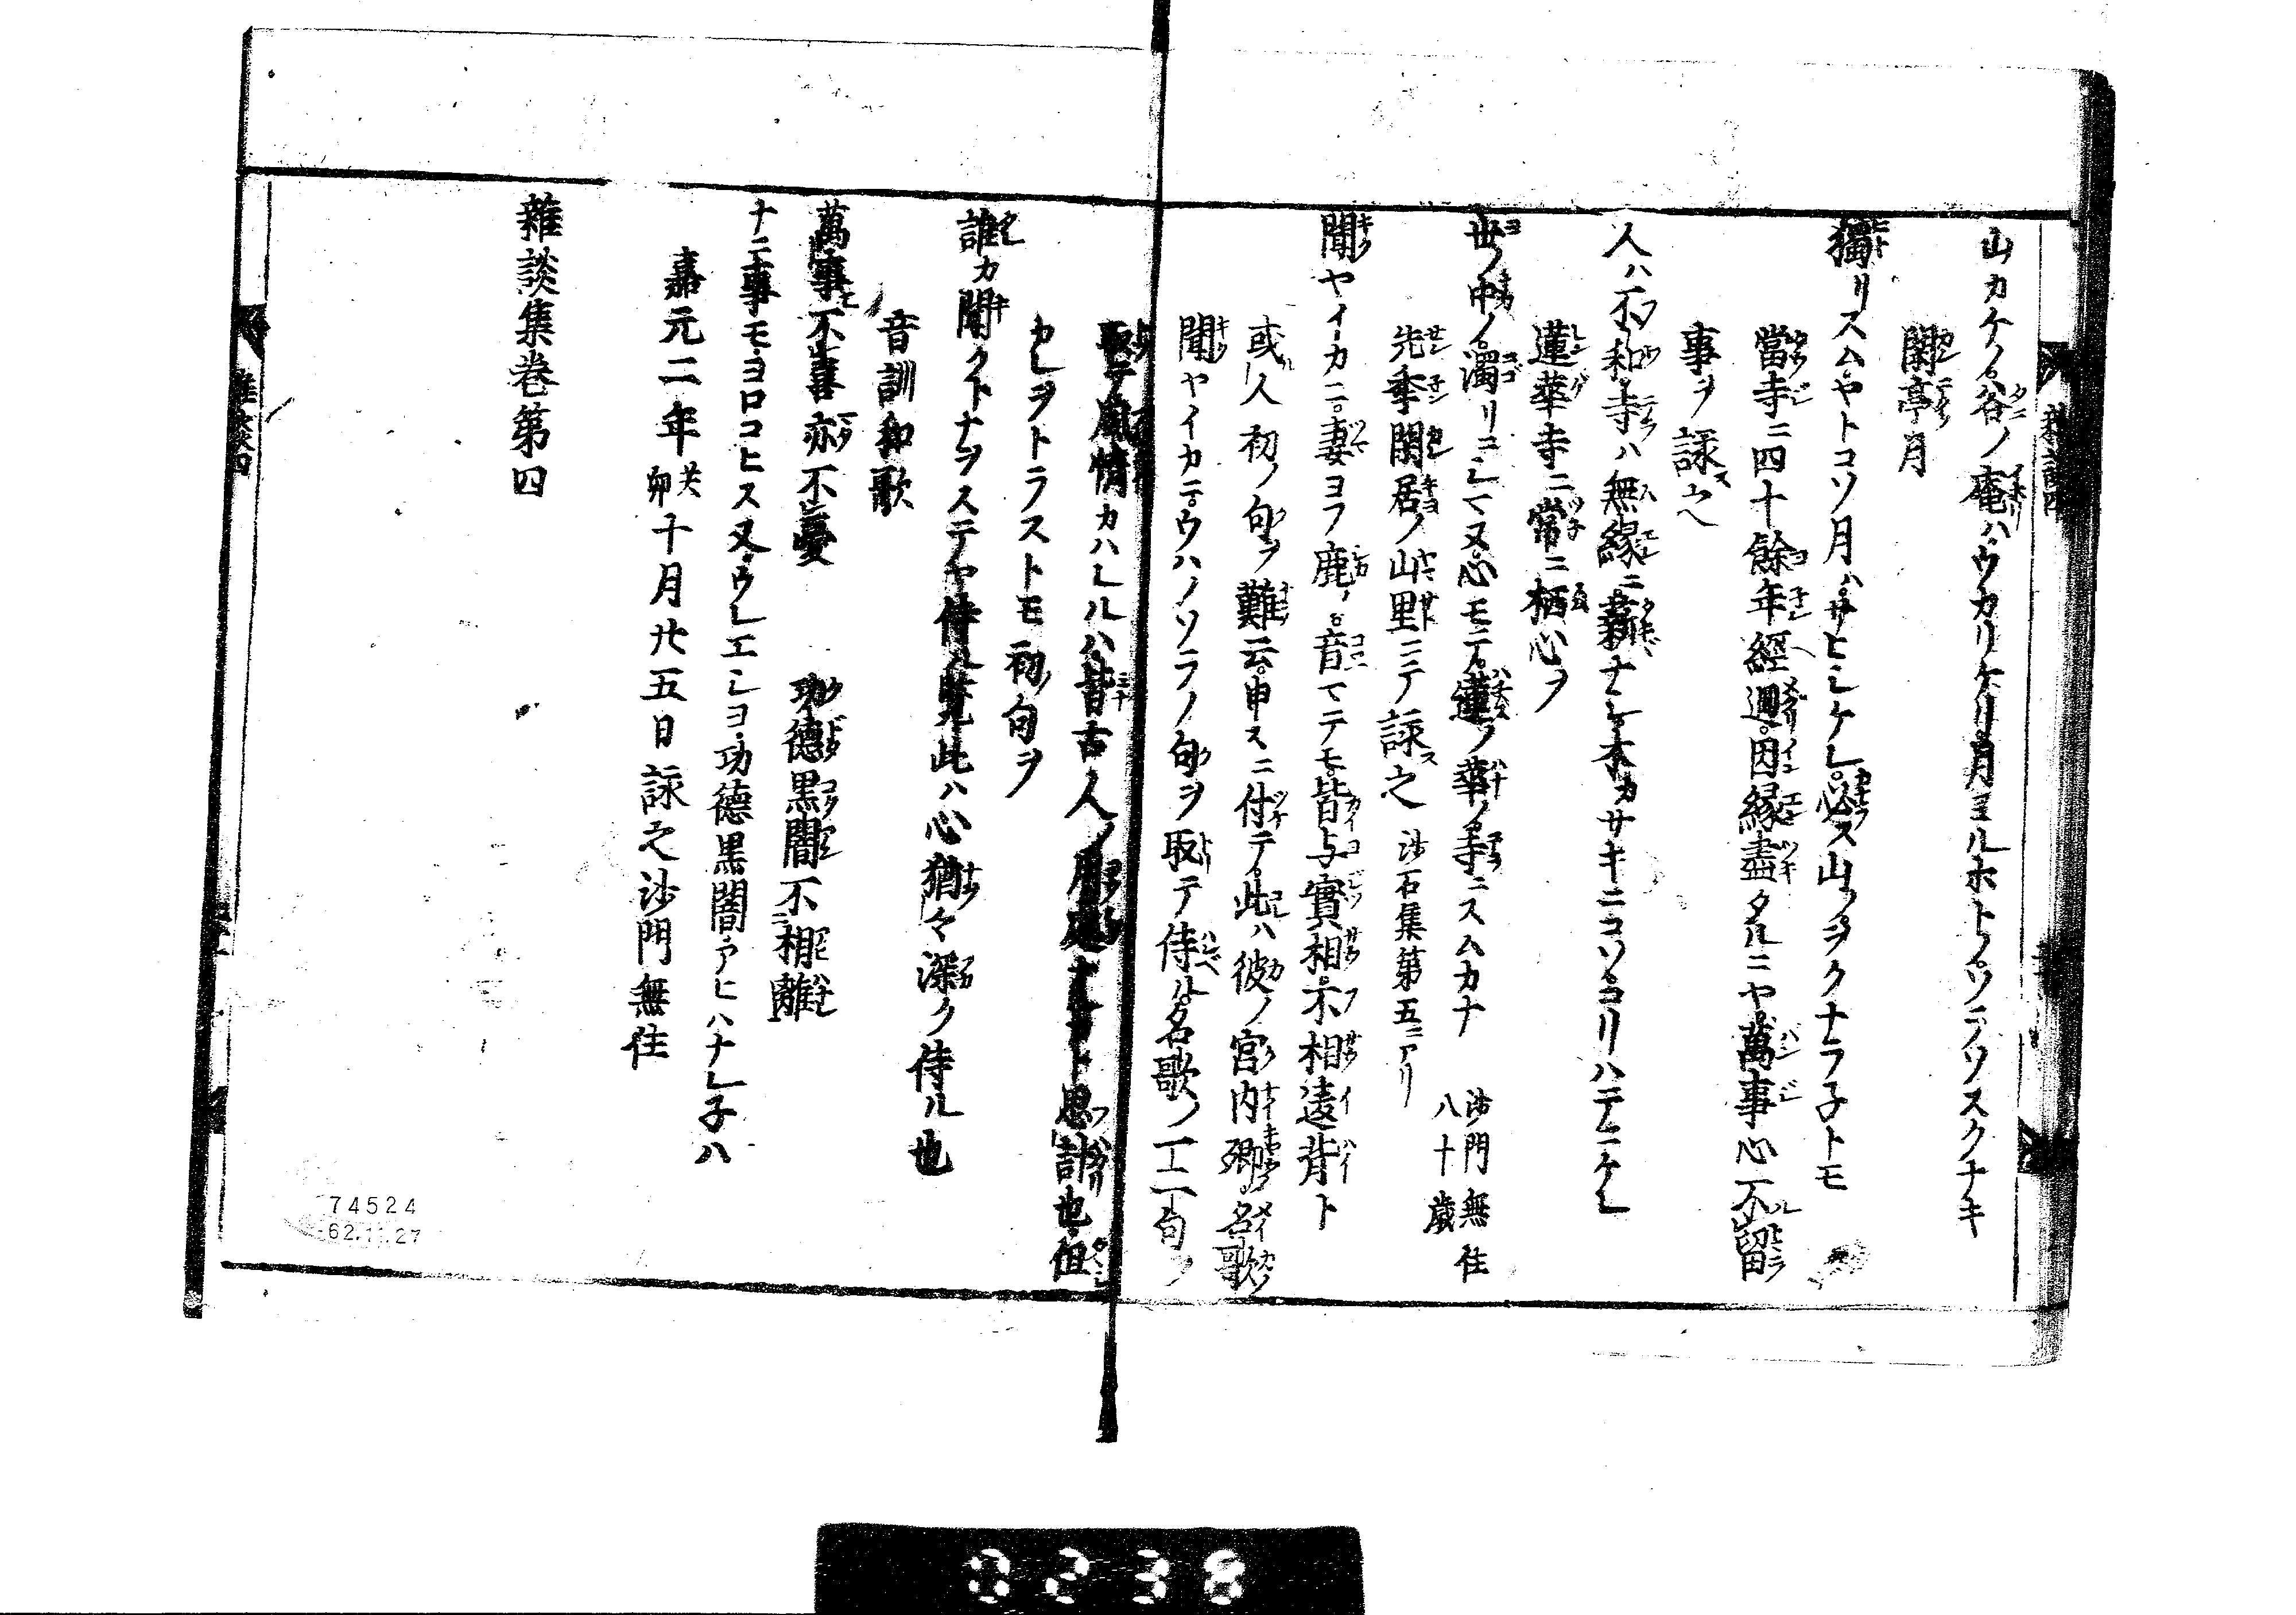 山カケノ谷ノ庵ハウカリケリ月ヨルホトノソラノソスクナキ
閑亭月
獨リスムヤトコソ月ハサヒシケレ必ス山ノヲクナラ子トモ
當寺ニ四十餘年經廻因縁盡タルニヤ萬事心不留
事ヲ詠之
人ハ不和寺ハ無縁ニ薪ナシ木カサキニコソコリハテニケレ
蓮華寺ニ常ニ栖心ヲ
世ノ中ノ濁リニシマヌ心モテ蓮ノ華ノ寺ニスムカナ
沙門無住
八十歳
先季閑居ノ山里ニテ詠之 沙石集第五ニアリ
聞ヤイカニ妻ヨフ鹿ノ音マテモ皆与實相不相違背ト
或人初ノ句ヲ難云申スニ付テ此ハ彼ノ宮内卿名歌
聞ヤイカニウハノソラノ句ヲ取テ侍ル名歌ノ一二句ヲ
取テ風情カハレルハ皆古人ノ用處ナリト思計也但
カレヲトラストモ初ノ句ヲ
誰カ聞クトナヲステヤ侍ル覽此ハ心猶々深ク侍ル也
音訓和歌
萬事不喜亦不憂 功德黒闇不相離
ナニ事モヨロコヒス又ウレエシヨ功德黒闇アヒハナレ子ハ
嘉元二年十月廿五日詠之沙門無住
雜談集卷第四
74524
62.11.27
0238